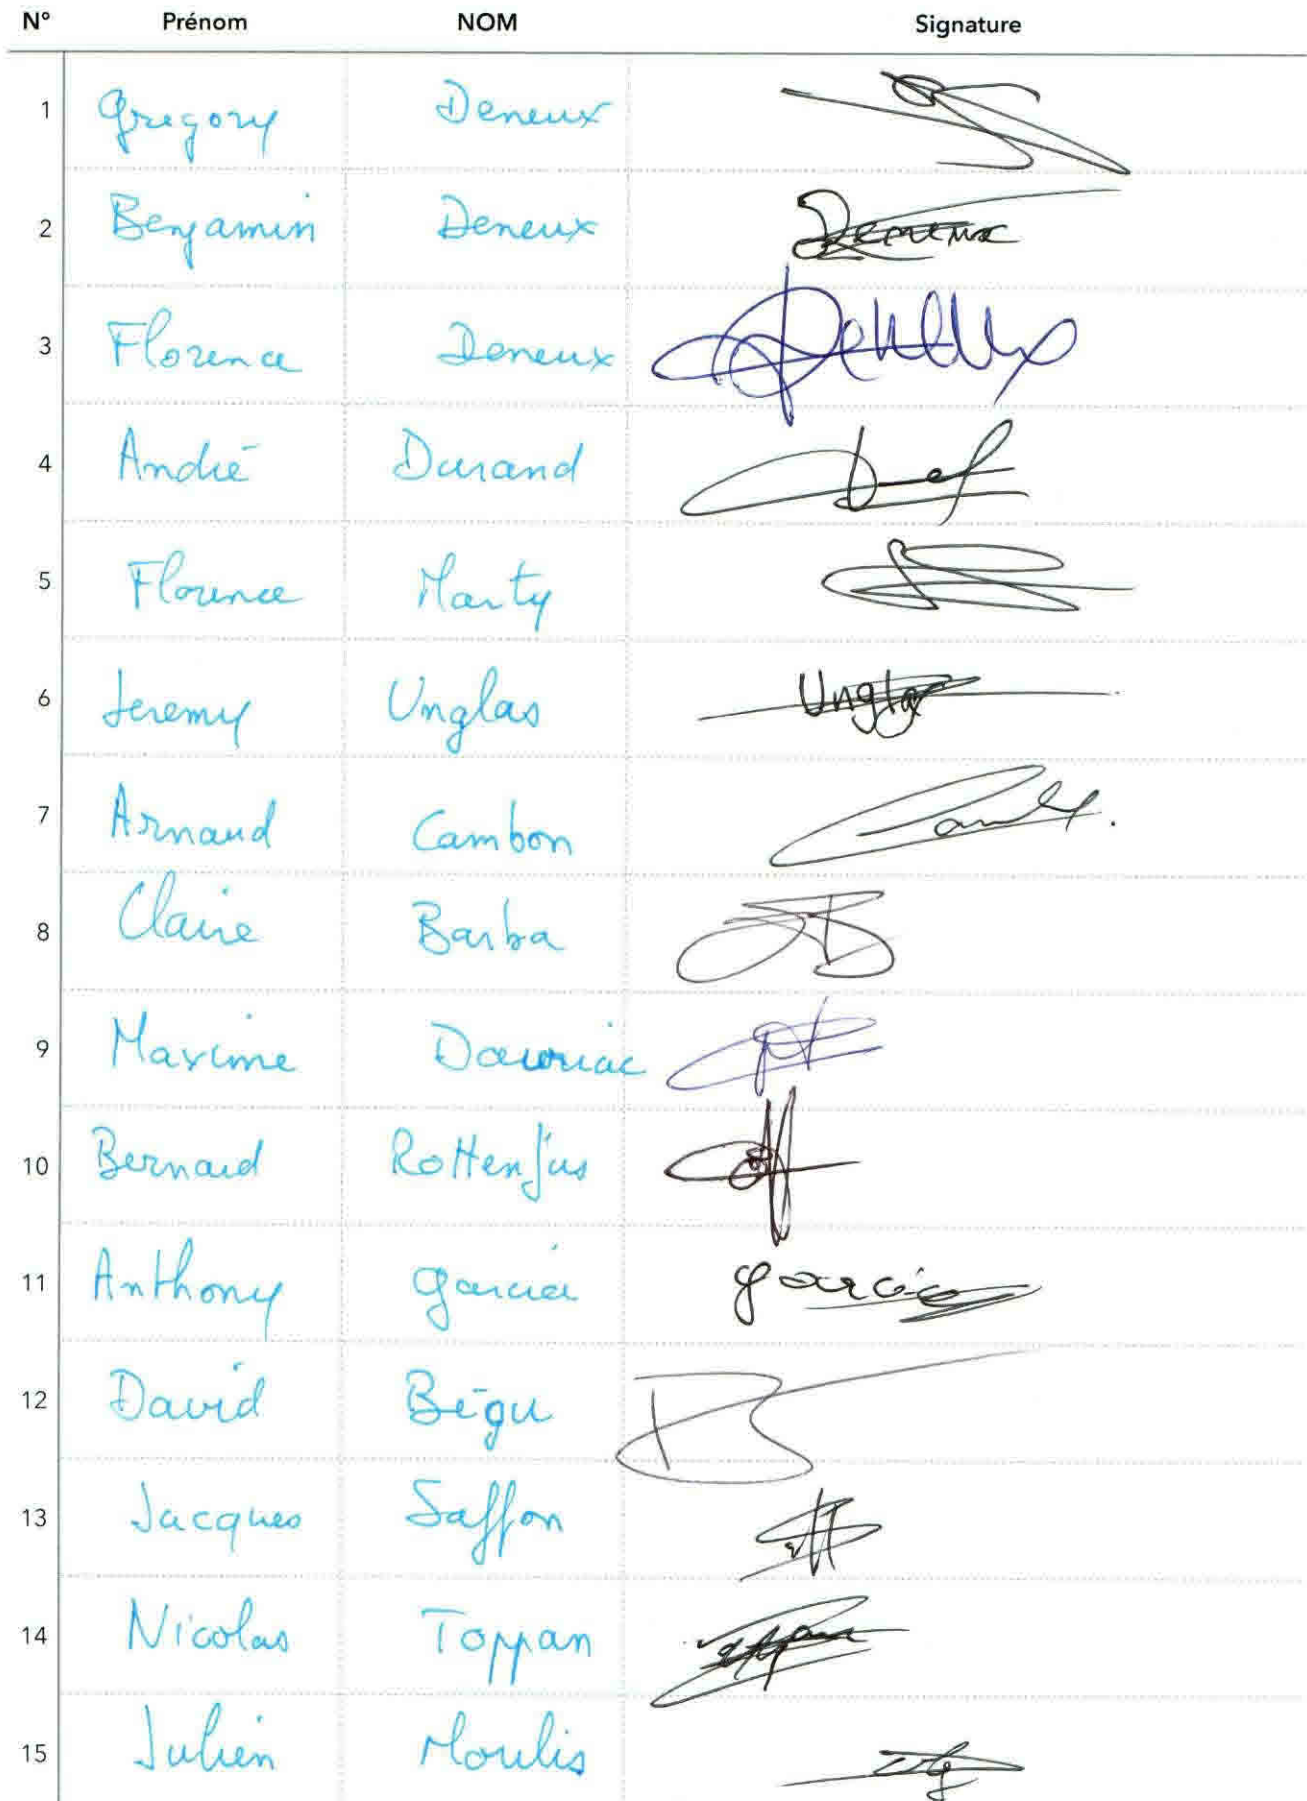 N° Prénom NOM Signature
1 Gregory Deneux
2 Benjamin Deneux Deneux
3 Florence Deneux Deneux
4 André Durand
5 Florence Marty
6 Jeremy Unglas Unglas
7 Arnaud Cambon
8 Claire Barba
9 Maxime Dauriac
10 Bernard Rottenfus
11 Anthony Garcia Garcia
12 David Bégu
13 Jacques Saffon
14 Nicolas Toppan
15 Julien Moulis